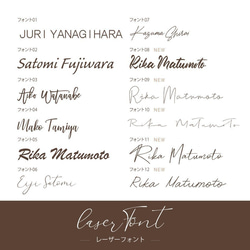 フォント01
JURI YANAGIHARA
フォント02
Satomi Fujiwara
フォント03
Aiko Watanabe
フォント04
Mako Tamiya
フォント05
Rika Matumoto
フォント06
Eiji Satomi
フォント07
Kazuma Ghirai
フォント08 NEW
Rika Matumoto
フォント09 NEW
Rika Matumoto
フォント10 NEW
Rika Matumoto
フォント11 NEW
Rika Matumoto
フォント12 NEW
Rika Matumoto
laser font
レーザーフォント